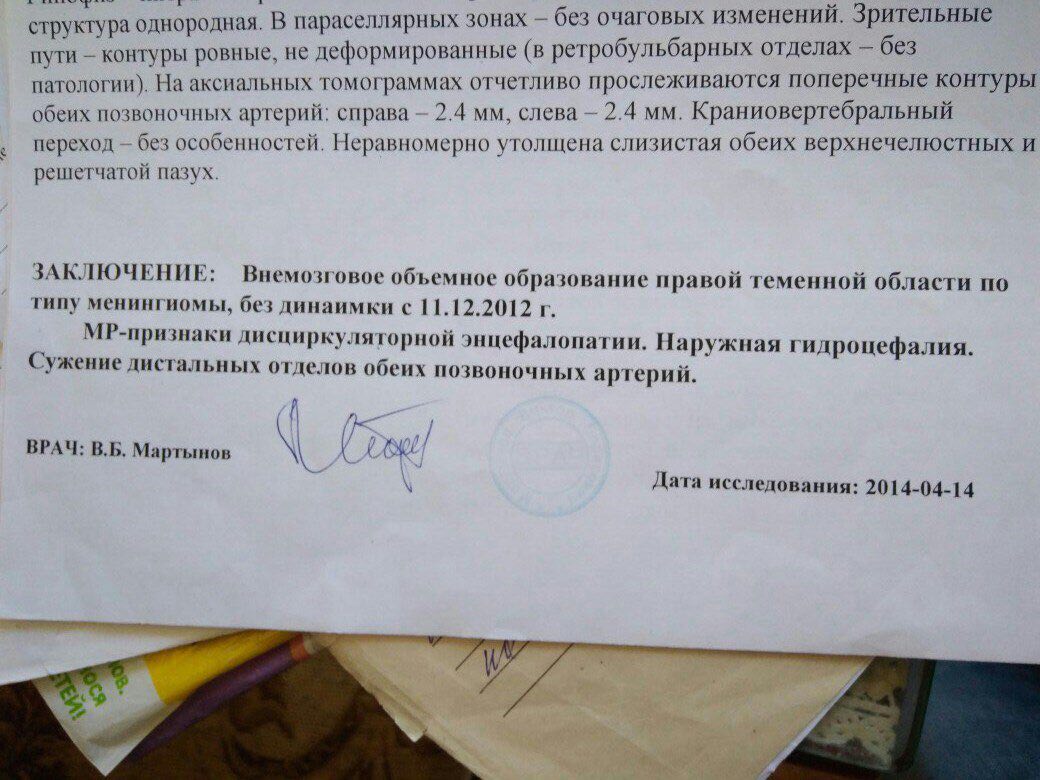 структура однородная. В параселлярных зонах – без очаговых изменений. Зрительные
пути – контуры ровные, не деформированные (в ретробульбарных отделах – без
патологии). На аксиальных томограммах отчетливо прослеживаются поперечные контуры
обеих позвоночных артерий: справа – 2.4 мм, слева – 2.4 мм. Краниовертебральный
переход – без особенностей. Неравномерно утолщена слизистая обеих верхнечелюстных и
решетчатой пазух.
ЗАКЛЮЧЕНИЕ: Внемозговое объемное образование правой теменной области по
типу менингиомы, без динаимки с 11.12.2012 г.
МР-признаки дисциркуляторной энцефалопатии. Наружная гидроцефалия.
Сужение дистальных отделов обеих позвоночных артерий.
ВРАЧ: В.Б. Мартынов
Дата исследования: 2014-04-14